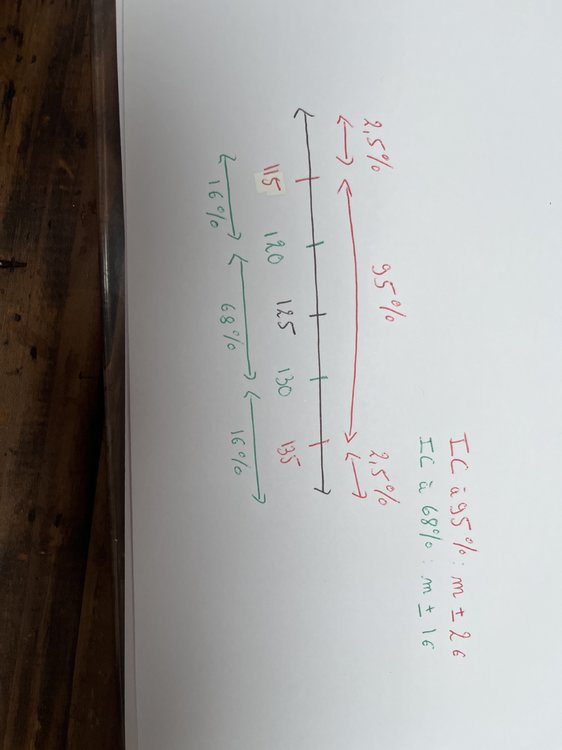 IC à 95% : m ± 2σ
IC à 68% : m ± 1σ
2,5% 95% 2,5%
115 120 125 130 135
16% 68% 16%